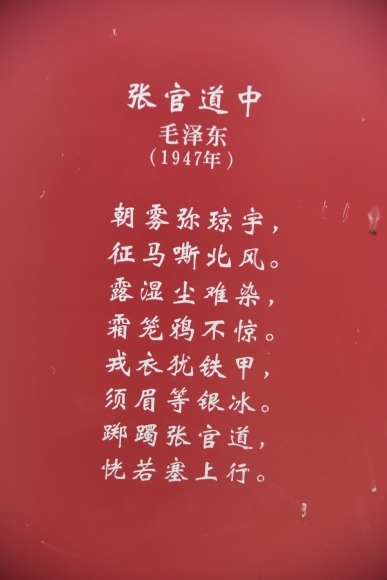 张官道中
毛泽东
（1947年）
朝雾弥琼宇，
征马嘶北风。
露湿尘难染，
霜笼鸦不惊。
戎衣犹铁甲，
须眉等银冰。
踯躅张官道，
恍若塞上行。